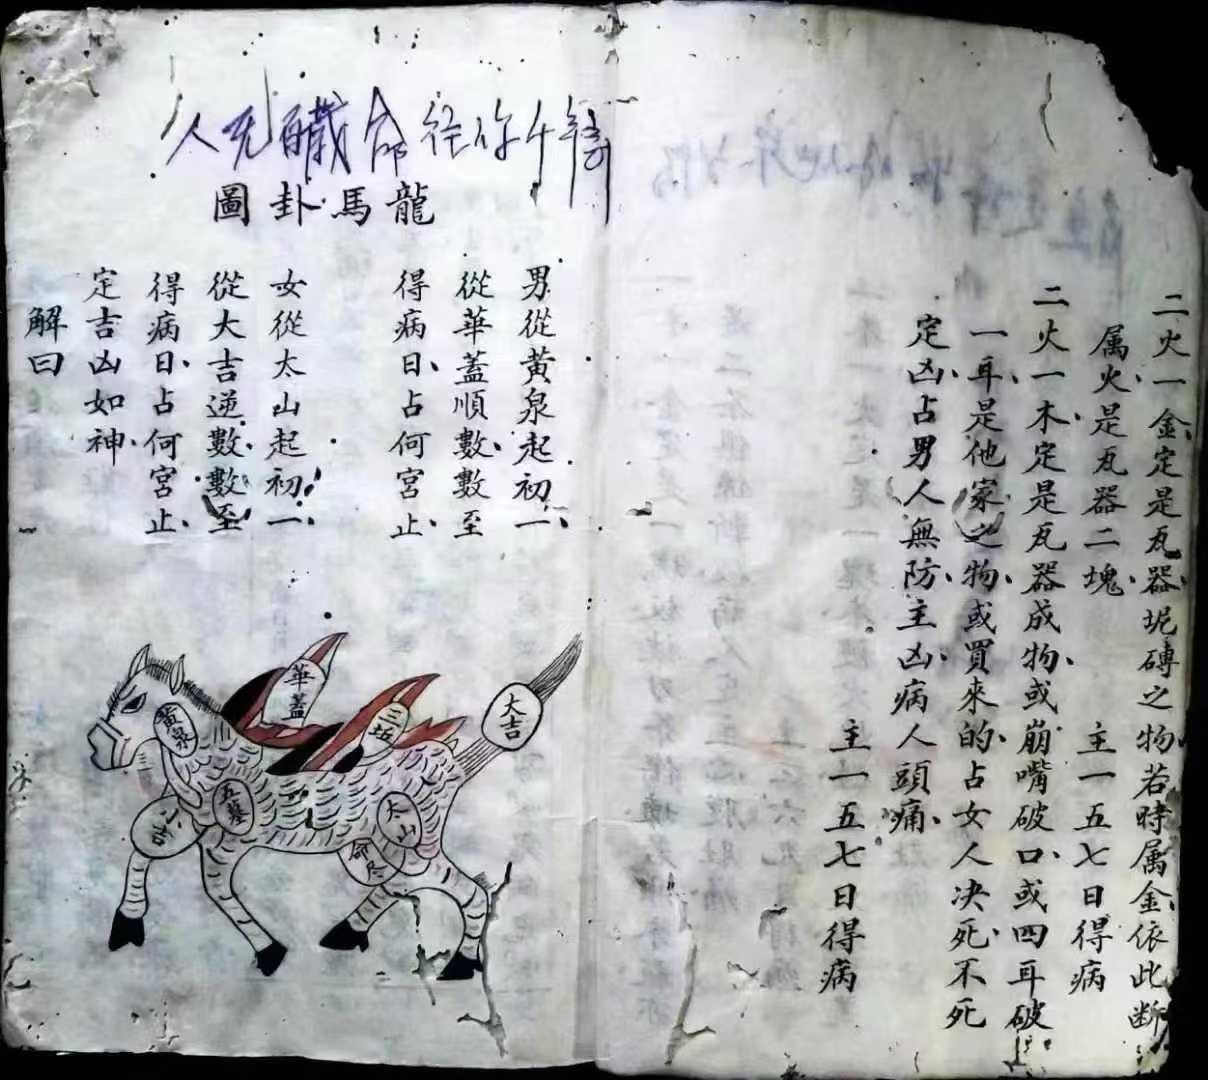 二火一金定是瓦器坭磚之物若時属金依此断
属火是瓦器二塊 主一五七日得病
二火一木定是瓦器成物或崩嘴破口或四耳破
一耳是他家之物或買來的占女人决死不死
定凶占男人無防主凶病人頭痛
主一五七日得病
龍馬卦圖
男從黄泉起初一
從華蓋順數數至
得病日占何宮止
女從太山起初一
從大吉逆數數至
得病日占何宮止
定吉凶如神
解曰
華蓋
三坵
大吉
黄泉
五墓
小吉
太山
命尽